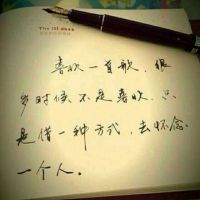 The
喜欢一首歌，很
多时候不是喜欢，只
是借一种方式，去怀念
一个人。